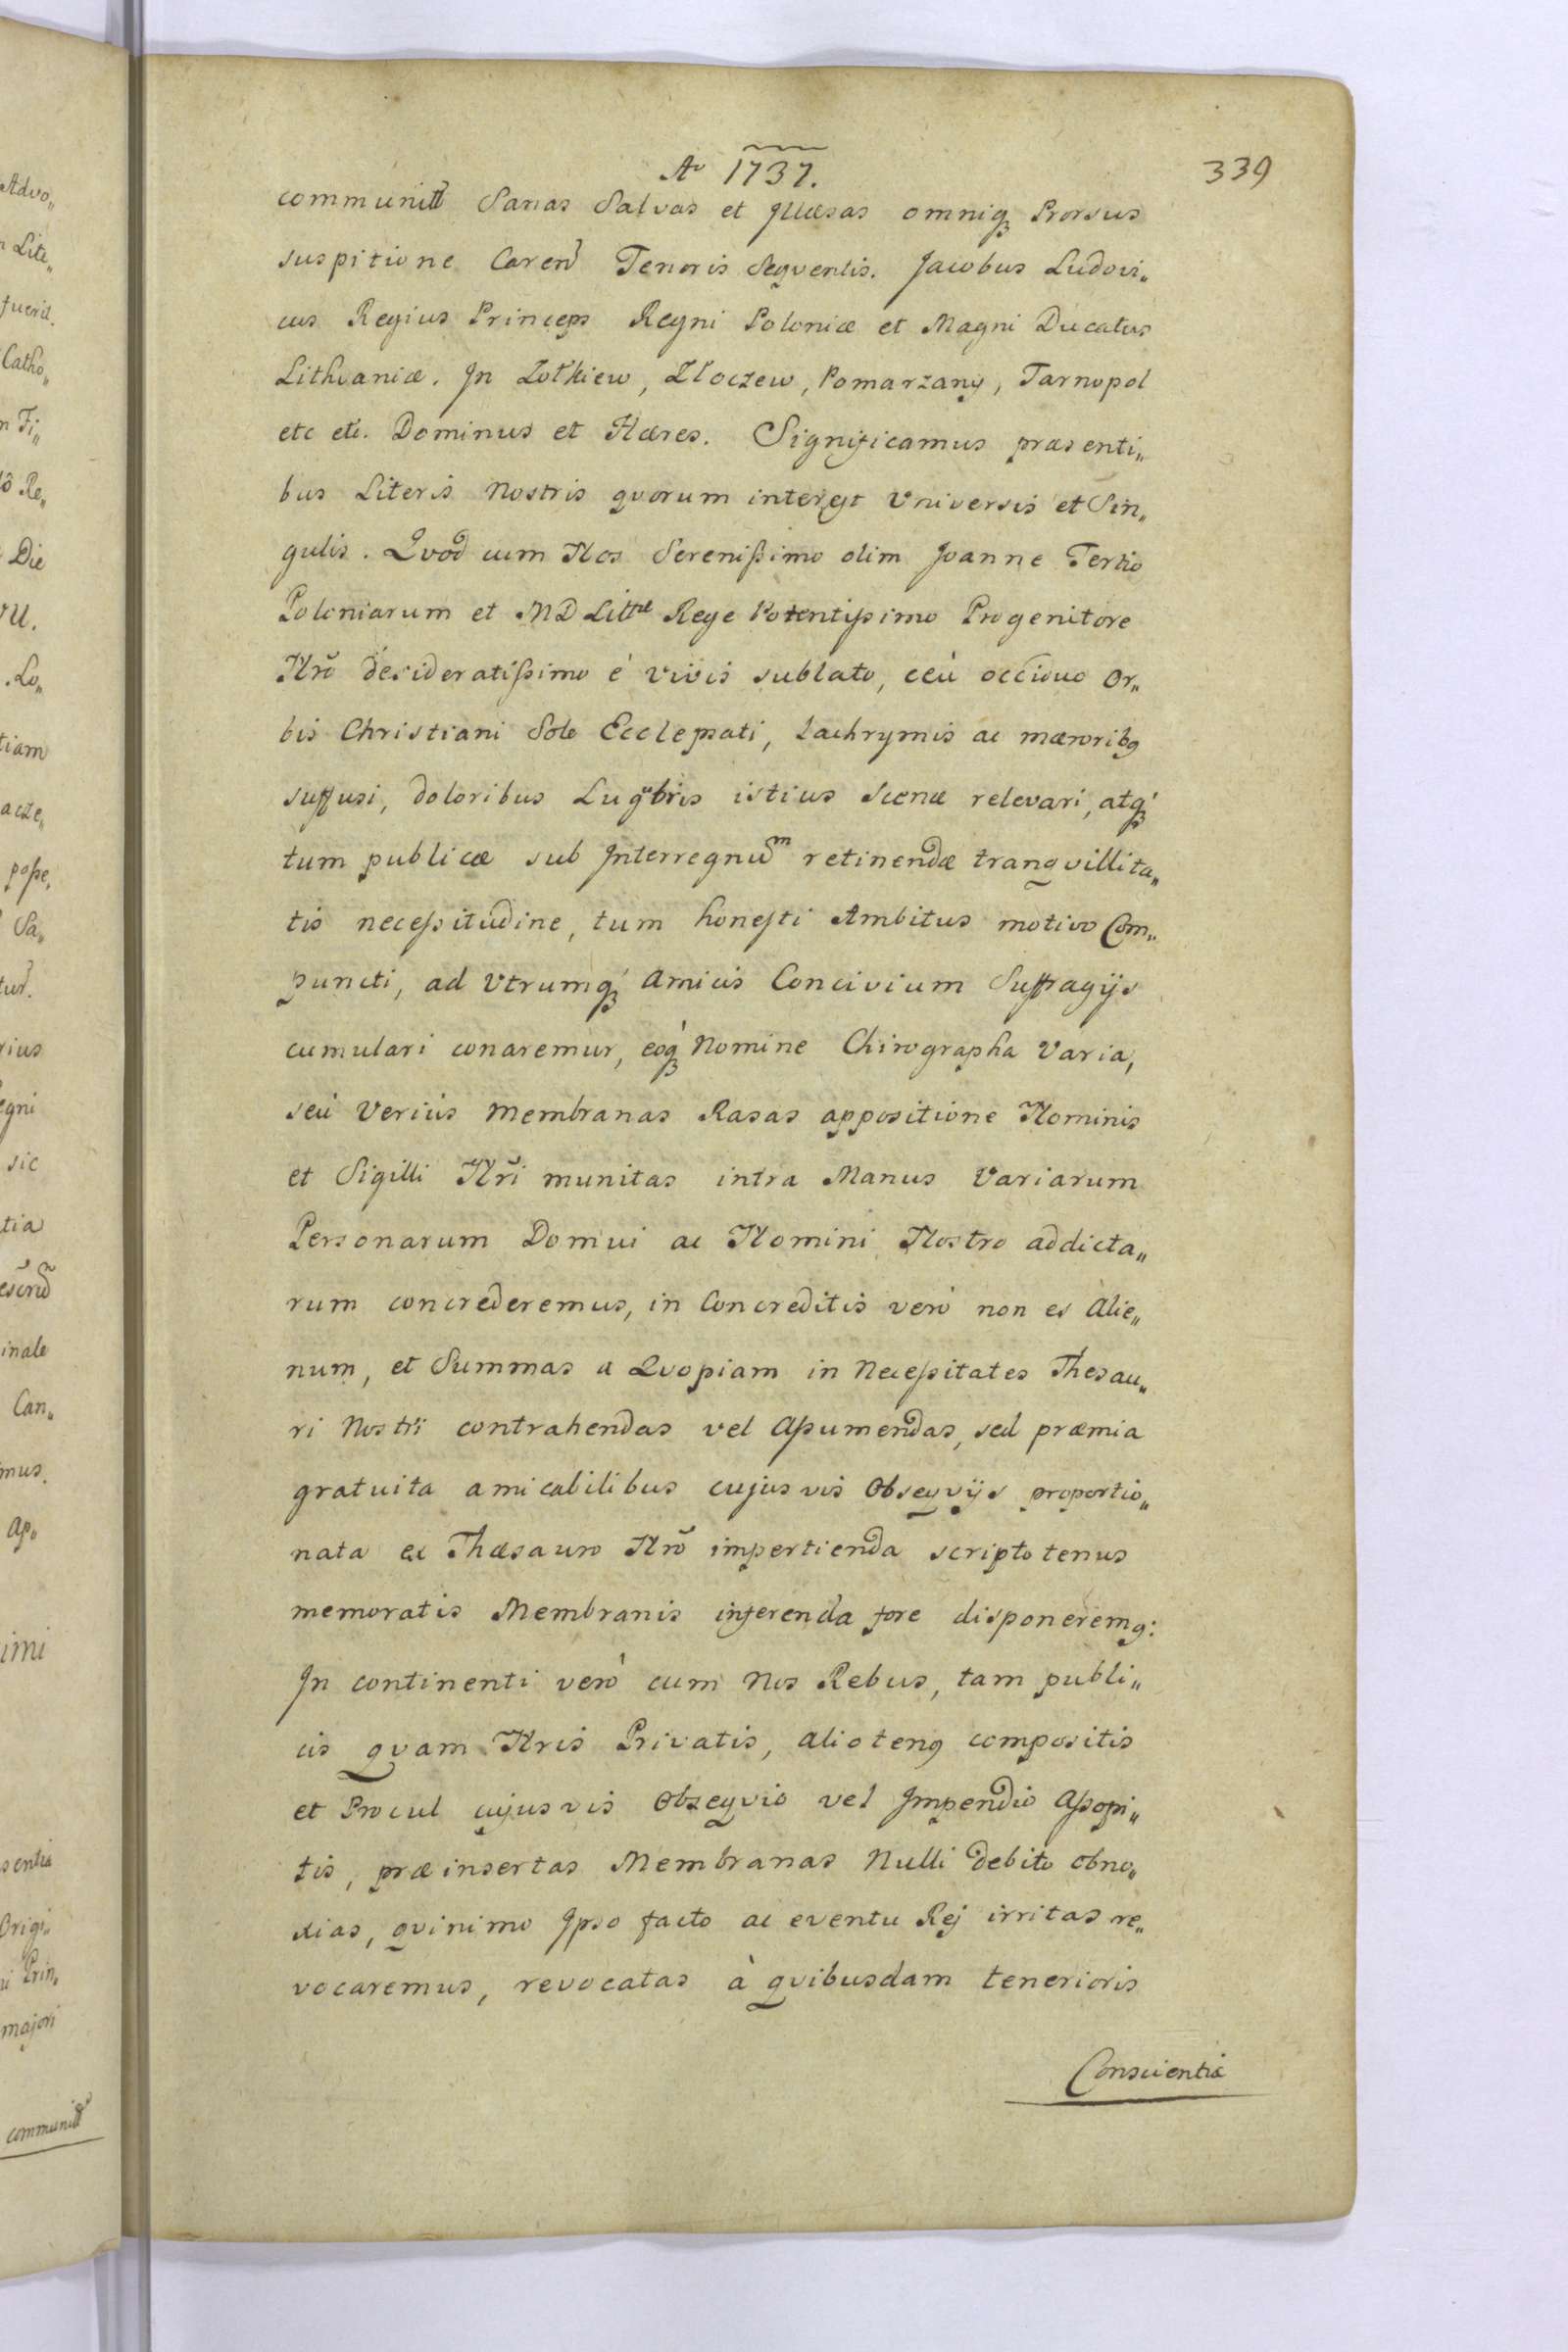 Aº 1737.
339
communitt Sanas Salvas et Jllæsas omniq; Prorsus
suspitione Caren Tenoris Seqventis. Jacobus Ludovi„
cus Regius Princeps Regni Poloniæ et Magni Ducatus
Lithvaniæ. Jn Zołkiew, Złoczew, Pomarzany, Tarnopol
etc etc. Dominus et Hæres. Significamus præsenti„
bus Literis Nostris qvorum interest Vniversis et Sin„
gulis. Qvod cum Nos Serenißimo olim Joanne Tertio
Poloniarum et MD Littæ Rege Potentißimo Progenitore
Nrõ desideratißimo è vivis sublato, ceù occiduo Or„
bis Christiani Sole Ecclepsati, Lachrymis ac mæroribg
suffusi, doloribus Lugubris istius Scenæ relevari, atq;
tum publicæ sub Jnterregnum retinendæ tranqvillita„
tis neceßitudine, tum honesti Ambitus motivo Com„
puncti, ad Vtrumq; amicis Concivium Suffragijs
cumulari conaremur, eoq; Nomine Chirographa Varia,
seù Verius Membranas Rasas appositione Nominis
et Sigilli Nrĩ munitas intra Manus Variarum
Personarum Domui ac Nomini Nostro addicta„
rum concrederemus, in Concreditis verò non es Alie„
num, et Summas a Qvopiam in Neceßitates Thesau„
ri Nostri contrahendas vel Aßumendas, sed præmia
gratuita amicabilibus cujusvis Obseqvijs proportio„
nata ex Thæsauro Nrõ impertienda scripto tenus
memoratis Membranis inferenda fore disponeremg:
Jn continenti verò cum Nos Rebus, tam publi„
cis qvam Nris Privatis, alioteng compositis
et Procul cujusvis Obseqvio vel Jmpendio Aßopi„
tis, præinsertas Membranas Nulli debito obno„
xias, qvinimo Jpso facto ac eventu Rej irritas re„
vocaremus, revocatas à qvibusdam tenerioris
Conscientiæ